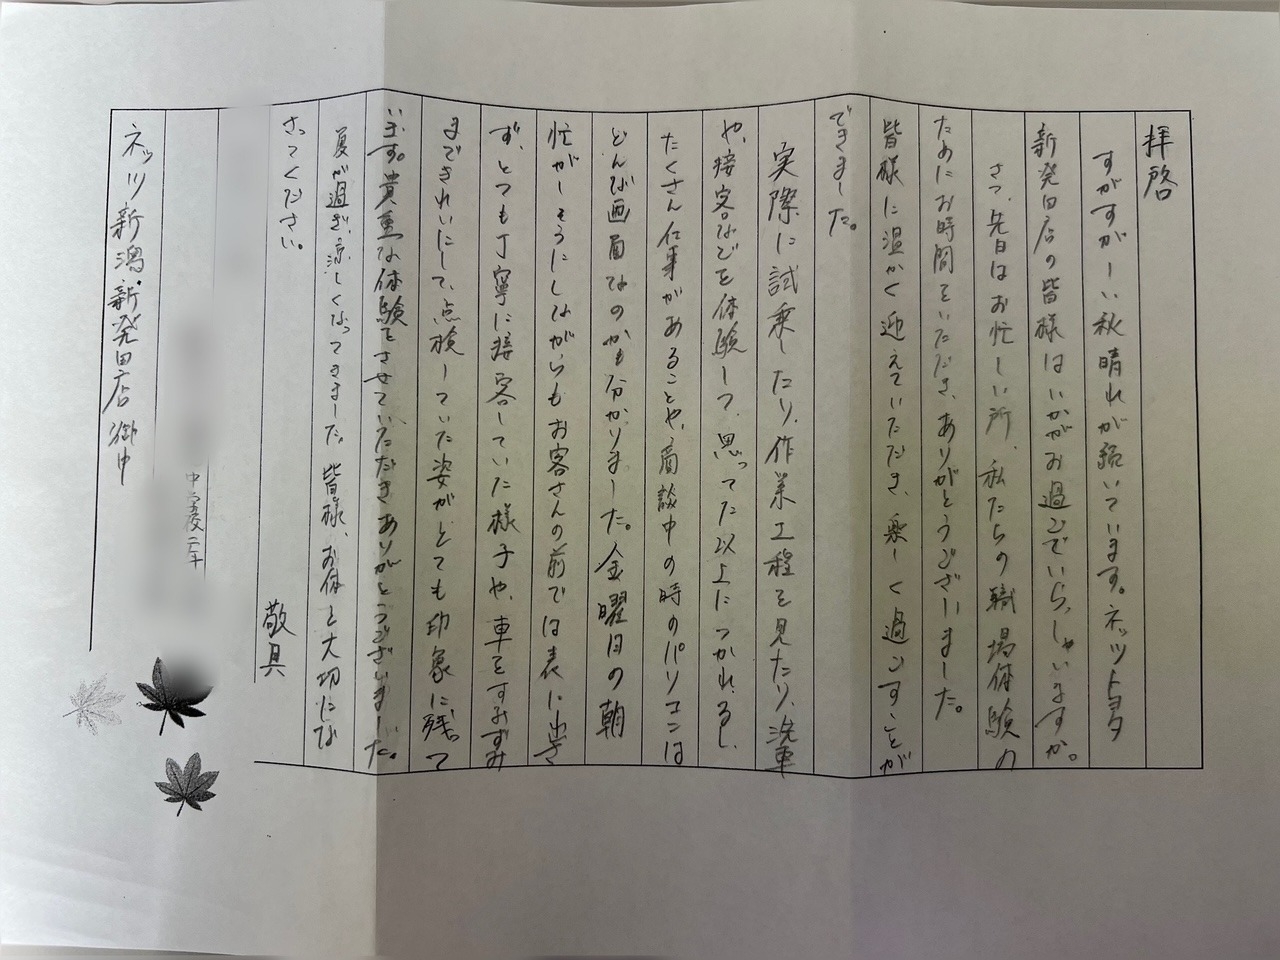 拝啓
すがすがしい秋晴れが続いています。ネッツトヨタ
新発田店の皆様はいかがお過ごしでいらっしゃいますか。
さて、先日はお忙しい所、私たちの職場体験の
ためにお時間をいただき、ありがとうございました。
皆様に温かく迎えていただき、楽しく過ごすことが
できました。
実際に試乗したり、作業工程を見たり、洗車
や、接客などを体験して、思ってた以上につかれるし、
たくさん仕事があることや、商談中の時のパソコンは
どんな画面なのかも分かりました。金曜日の朝
忙がしそうにしながらもお客さんの前では表に出さ
ず、とても丁寧に接客していた様子や、車をすみずみ
まできれいにして、点検していた姿がとても印象に残って
います。貴重な体験をさせていただきありがとうございました。
夏が過ぎ、涼しくなってきました。皆様、お体を大切にな
さってください。
敬具
ネッツ新潟 新発田店 御中